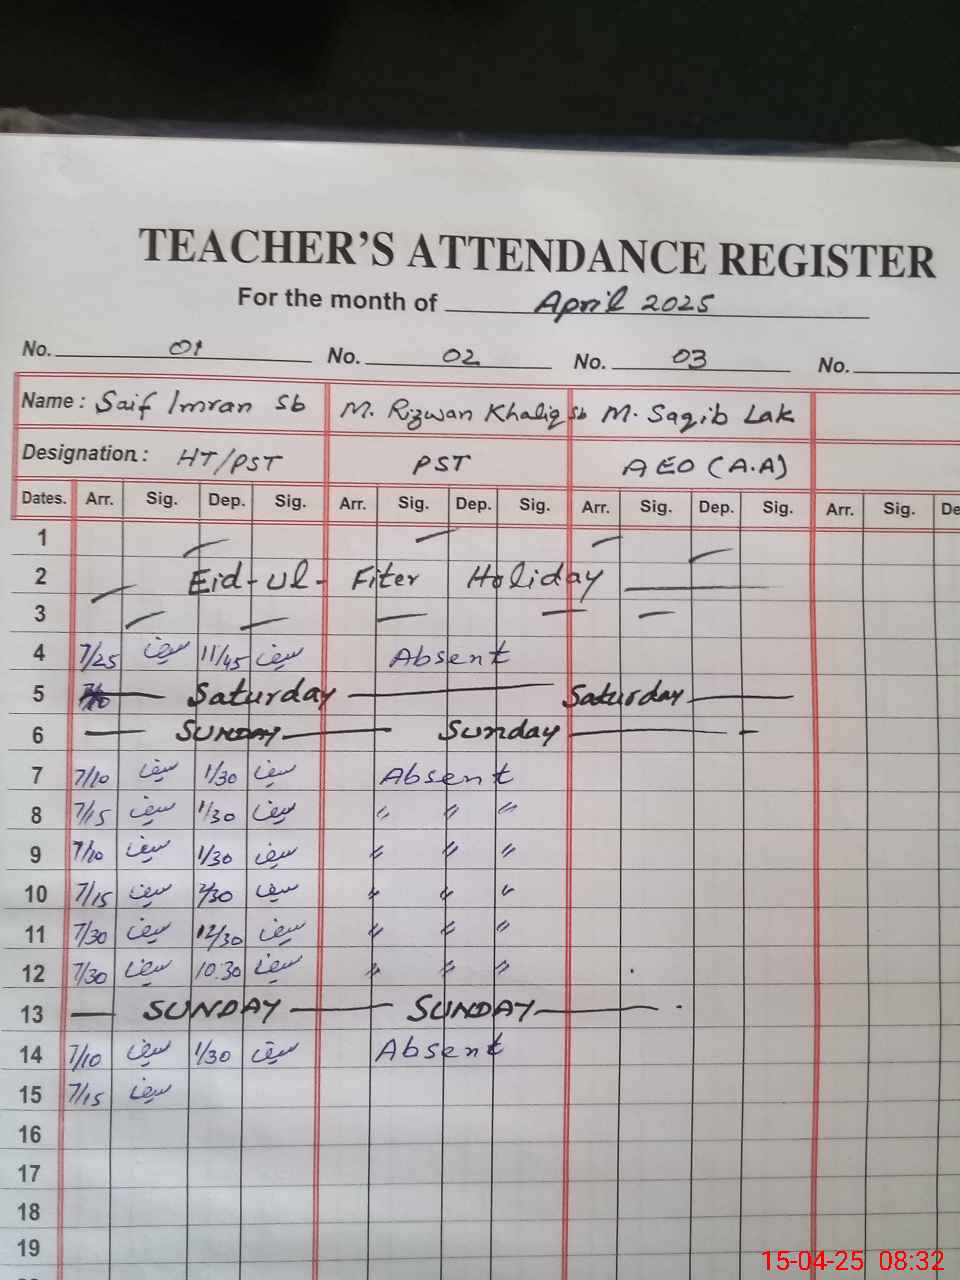 TEACHER'S ATTENDANCE REGISTER
For the month of April 2025
No. 01 No. 02 No. 03 No.
Name: Saif Imran Sb M. Rizwan Khaliq Sb M. Saqib Lak
Designation: HT/PST PST AEO (A.A)
Dates. Arr. Sig. Dep. Sig. Arr. Sig. Dep. Sig. Arr. Sig. Dep. Sig. Arr. Sig. De
1
2 Eid-ul-Fiter Holiday
3
4 7/25 سیف 11/45 سیف Absent
5 Saturday Saturday
6 SUNDAY Sunday
7 7/10 سیف 1/30 سیف Absent
8 7/15 سیف 1/30 سیف " " "
9 7/10 سیف 1/30 سیف " " "
10 7/15 سیف /30 سیف " " "
11 7/30 سیف 12/30 سیف " " "
12 7/30 سیف 10:30 سیف " " "
13 SUNDAY SUNDAY
14 7/10 سیف 1/30 سیف Absent
15 7/15 سیف
16
17
18
19
15-04-25 08:32